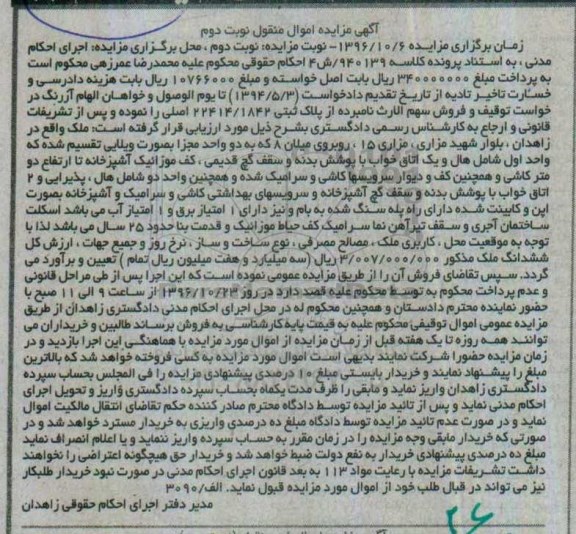 آگهی مزایده اموال منقول نوبت دوم
زمان برگزاری مزایده ۱۳۹۶/۱۰/۶- نوبت مزایده: نوبت دوم ، محل برگزاری مزایده: اجرای احکام
مدنی ، به استناد پرونده کلاسه ۹۴۰۱۳۹/ش۴ احکام حقوقی محکوم علیه محمدرضا عمرزهی محکوم است
به پرداخت مبلغ ۳۴۰۰۰۰۰۰۰ ریال بابت اصل خواسته و مبلغ ۱۰۷۶۶۰۰۰ ریال بابت هزینه دادرسی و
خسارت تاخیر تادیه از تاریخ تقدیم دادخواست (۱۳۹۴/۵/۳) تا یوم الوصول و خواهان الهام آزرنگ در
خواست توقیف و فروش سهم الارث نامبرده از پلاک ثبتی ۲۲۴۱۴/۱۸۴۲ اصلی را نموده و پس از تشریفات
قانونی و ارجاع به کارشناس رسمی دادگستری بشرح ذیل مورد ارزیابی قرار گرفته است: ملک واقع در
زاهدان ، بلوار شهید مزاری ، مزاری ۱۵ ، روبروی میلان ۸ که به دو واحد مجزا بصورت ویلایی تقسیم شده که
واحد اول شامل هال و یک اتاق خواب با پوشش بدنه و سقف گچ قدیمی ، کف موزائیک آشپزخانه تا ارتفاع دو
متر کاشی و همچنین کف و دیوار سرویسها کاشی و سرامیک شده و همچنین واحد دو شامل هال ، پذیرایی و ۲
اتاق خواب با پوشش بدنه و سقف گچ آشپزخانه و سرویسهای بهداشتی کاشی و سرامیک و آشپزخانه بصورت
اپن و کابینت شده دارای راه پله سنگ شده به بام و نیز دارای ۱ امتیاز برق و ۱ امتیاز آب می باشد اسکلت
ساختمان آجری و سقف تیرآهن نما سرامیک کف حیاط موزائیک و قدمت بنا حدود ۲۵ سال می باشد لذا با
توجه به موقعیت محل ، کاربری ملک ، مصالح مصرفی ، نوع ساخت و ساز ، نرخ روز و جمیع جهات ، ارزش کل
ششدانگ ملک مذکور ۳/۰۰۷/۰۰۰/۰۰۰ ریال (سه میلیارد و هفت میلیون ریال تمام ) تعیین و برآورد می
گردد. سپس تقاضای فروش آن را از طریق مزایده عمومی نموده است که این اجرا پس از طی مراحل قانونی
و عدم پرداخت محکوم به توسط محکوم علیه قصد دارد در روز ۱۳۹۶/۱۰/۲۳ از ساعت ۹ الی ۱۱ صبح با
حضور نماینده محترم دادستان و همچنین محکوم له در محل اجرای احکام مدنی دادگستری زاهدان از طریق
مزایده عمومی اموال توقیفی محکوم علیه به قیمت پایه کارشناسی به فروش برساند طالبین و خریداران می
توانند همه روزه تا یک هفته قبل از زمان مزایده از اموال مورد مزایده با هماهنگی این اجرا بازدید و در
زمان مزایده حضورا شرکت نمایند بدیهی است اموال مورد مزایده به کسی فروخته خواهد شد که بالاترین
مبلغ را پیشنهاد نمایند و خریدار بایستی مبلغ ۱۰ درصدی پیشنهادی مزایده را فی المجلس بحساب سپرده
دادگستری زاهدان واریز نماید و مابقی را ظرف مدت یکماه بحساب سپرده دادگستری واریز و تحویل اجرای
احکام مدنی نماید و پس از تائید مزایده توسط دادگاه محترم صادر کننده حکم تقاضای انتقال مالکیت اموال
نماید و در صورت عدم تائید مزایده توسط دادگاه مبلغ ده درصدی واریزی به خریدار مسترد خواهد شد و در
صورتی که خریدار مابقی وجه مزایده را در زمان مقرر به حساب سپرده واریز ننماید و یا اعلام انصراف نماید
مبلغ ده درصدی پیشنهادی خریدار به نفع دولت ضبط خواهد شد و خریدار حق هیچگونه اعتراضی را نخواهند
داشت تشریفات مزایده با رعایت مواد ۱۱۳ به بعد قانون اجرای احکام مدنی در صورت نبود خریدار طلبکار
نیز می تواند در قبال طلب خود از اموال مورد مزایده قبول نماید. الف/۳۰۹۰
مدیر دفتر اجرای احکام حقوقی زاهدان
۲۶